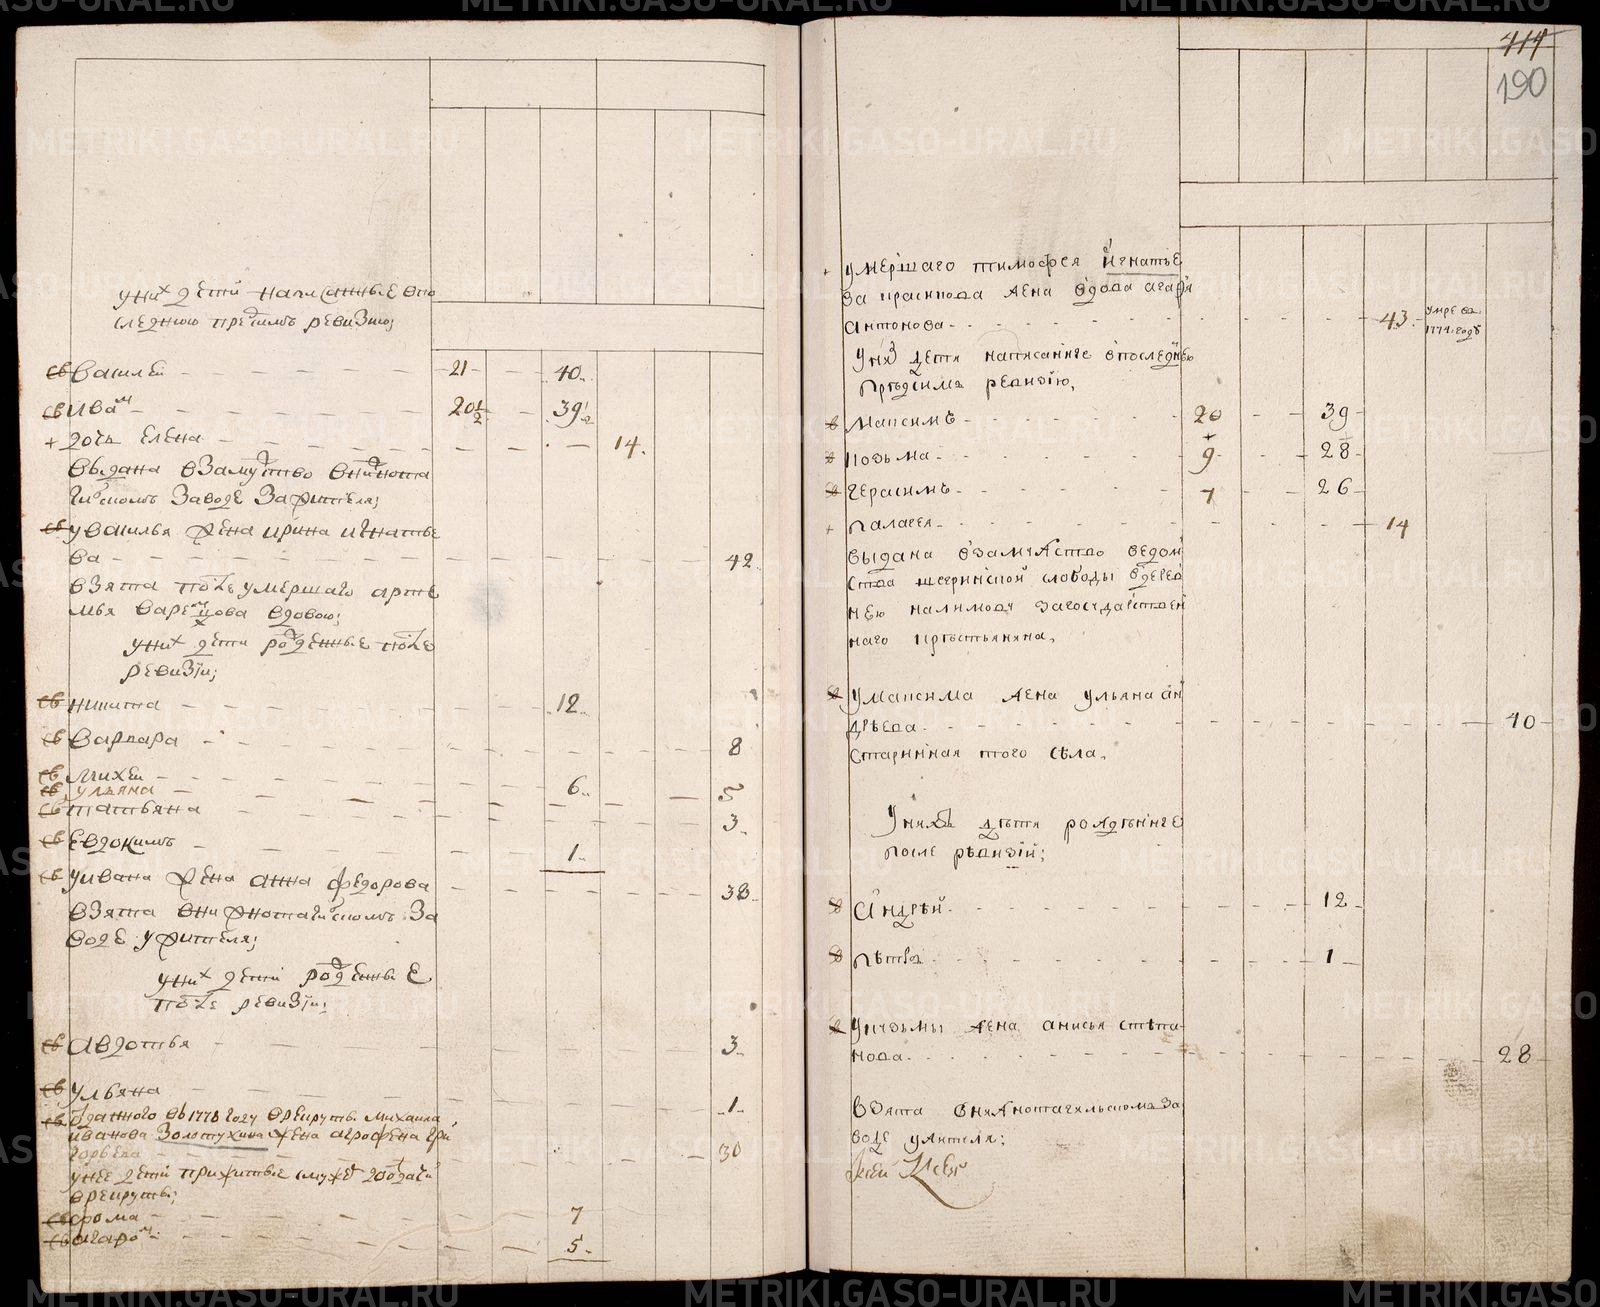 у них дети написанные в по
следнюю пред симъ ревизию;
св Василей 21 40
св Иванъ 20½ 39½
+ дочь Елена 14
выдана в замужство в Нижнота
гильскомъ заводе за жителя;
св у Василья жена Ирина Игнатье
ва 42
взята после умершаго Арте
мья вдовою;
у них дети рожденные после
ревизiи;
св Никита 12
св Варвара 8
св Михей 6
св Ульяна 5
св Татьяна 3
св Евдокимъ 1
св у Ивана жена Анна Федорова 38
взята в Нижнотагильскомъ за
воде у жителя;
у них дети рожденные
после ревизiи;
св Авдотья 3
св Ульяна 1
св отданного въ 1778 году в рекруты Михаила
Иванова Золотухина жена Агрофена Гри
горьева 30
у нее дети прижитые с мужем до отдачи
в рекруты;
св Фома 7
св Агафонъ 5
414
190
+ умершаго Тимофея Игнатье
ва жена вдова
Антонова 43 умре въ
1774 годе
у них дети написанные в последнюю
предсимъ ревизiю,
св Максимъ 20 39
св Козьма 9 28
св Герасимъ 7 26
+ Палагея 14
выдана взамужство ведом
ства слободы вдерев
нею Калимову загосударствен
наго крестьянина,
св уМаксима жена Ульяна Ан
дреева 40
старинная того села,
у нихъ дети рожденные
после ревизiй;
св Андрей 12
св Петръ 1
св уКузьмы жена Анисья Степа
нова 28
взята внижнотагильскомъ за
воде ужителя;